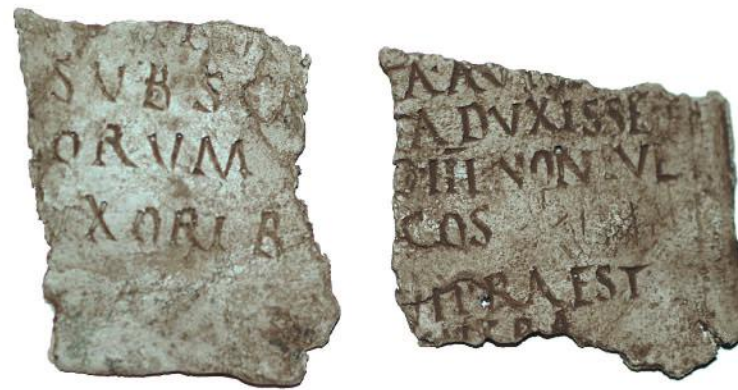 SVBSCR
ORVM
XORIB
A AV
A DVXISSE
III NON IVL
COS
PRAEST